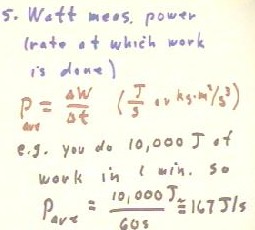 5. Watt meas. power
(rate at which work
is done)
P ave = ΔW/Δt (J/s or kg·m²/s³)
e.g. you do 10,000 J of
work in 1 min. so
P ave = 10,000 J/60s ≅ 167 J/s